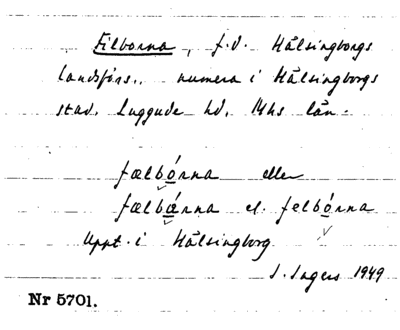 Filborna, f.d. Hälsingborgs
landsförs., numera i Hälsingborgs
stad. Luggude hd. Mhs län.
fælbórna eller
fælbárna el. felbórna
Uppt. i Hälsingborg
S. Ingers 1949
Nr 5701.